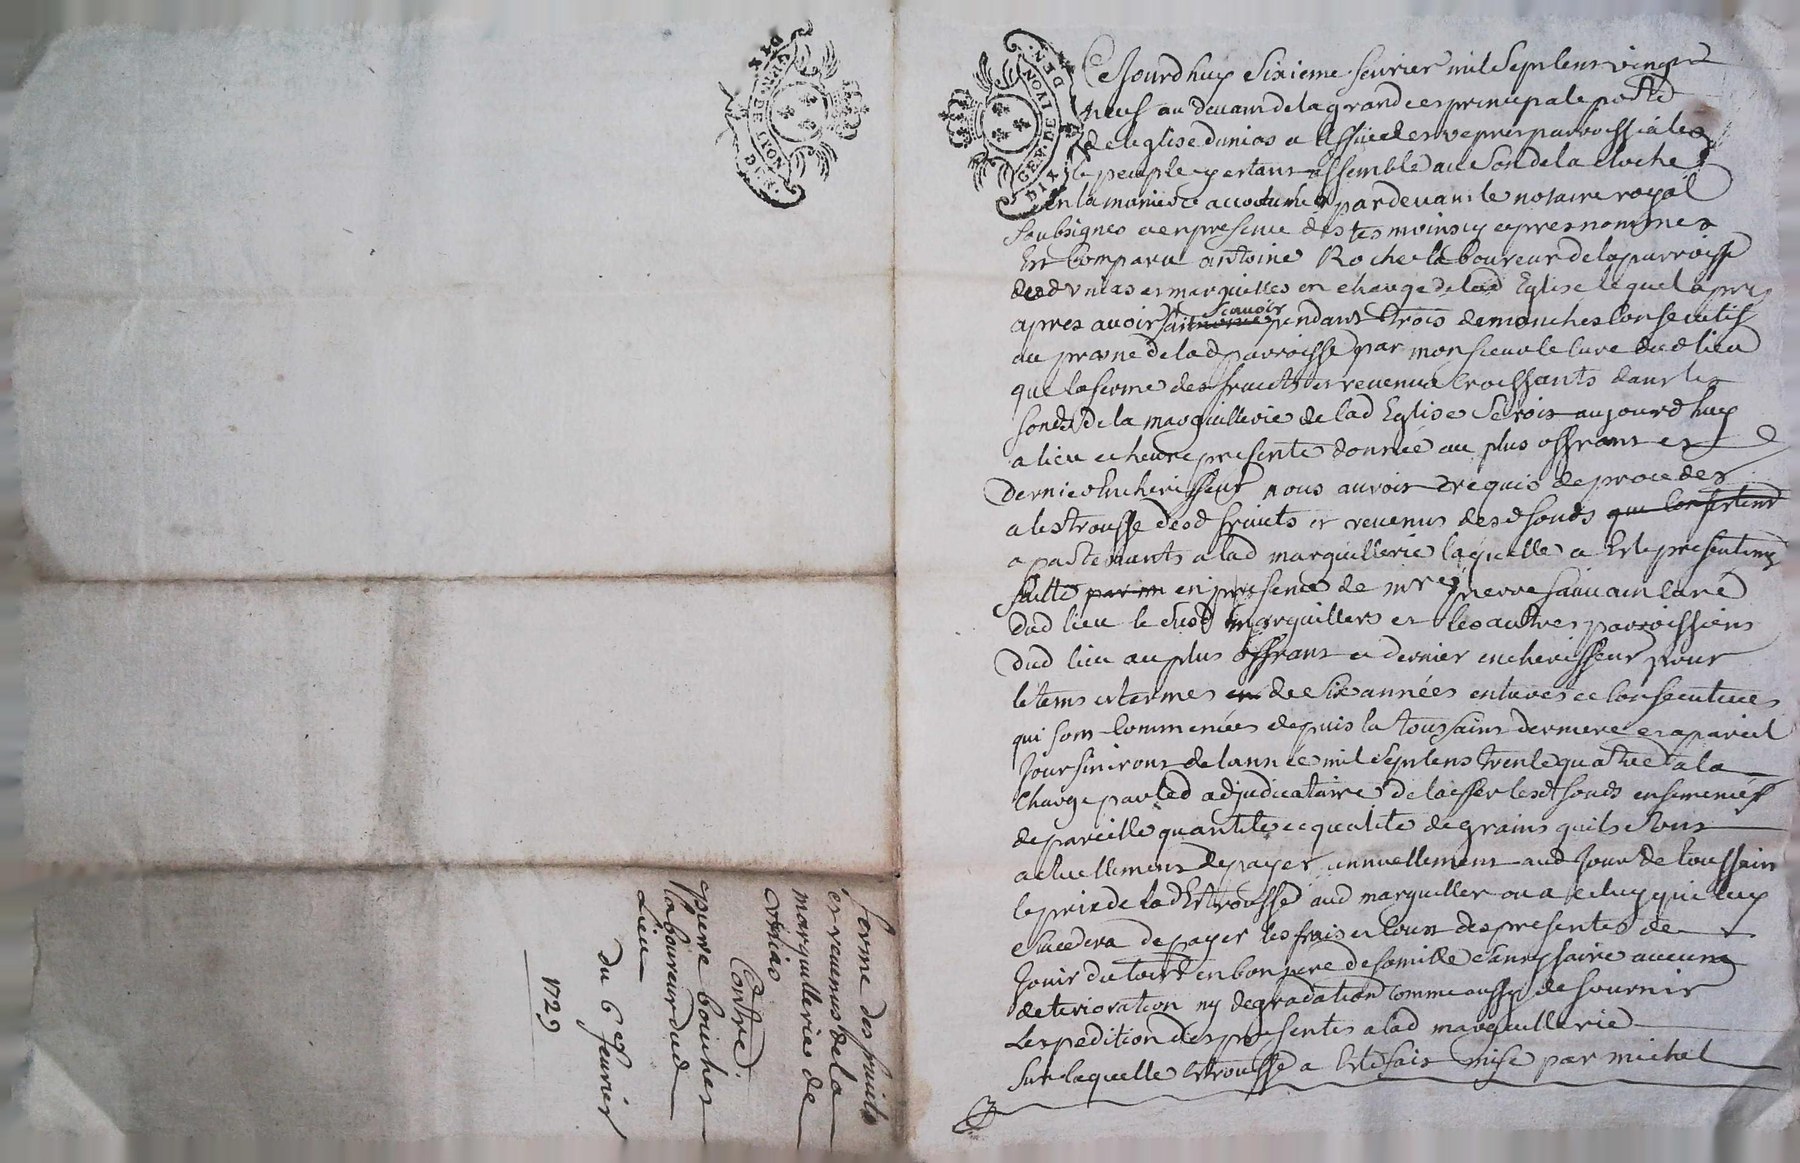 Cejourdhuy sixieme fevrier mil sept cens vingt
neuf au devant de la grande et principale porte
de leglise dunias a lissüe des vepres parroissiales
le peuple y estant assemblé au son de la cloche
en la maniere accoutumé pardevant le notaire royal
soubsigné et en presence des tesmoins cy apres nommes
Est comparu antoine Roche laboureur de la parroisse
dud unias et marguillier en charge de lad Eglise lequel apres
apres avoir fait scavoir pendant trois demanches consecutifs
au prosne de lad parroisse par monsieur le curé dud lieu
que la ferme des fruicts et revenus croissants dans les
fonds de la marguillerie de lad Eglise seroit aujourdhuy
a lieu et heure presente donnée au plus offrant et
dernier Encherisseur nous auroit requis de proceder
a lestrousse desd fruicts et revenus desd fonds que
apartenants a lad marguillerie laquelle a Esté presentem
faitte par en presence de mre pierre curé
dud lieu le susd marguilliers et les autres parroissiens
dud lieu au plus offrant et dernier encherisseur pour
le tems et termes de six années entieres et consecutives
qui sont commencées depuis la toussaint derniere et a pareil
jour finiront de lannée mil sept cens trente quatre a la
charge par led adjudicataire de laisser lesd fonds ensemencés
de pareille quantité et qualité de grains quils sont
actuellement de payer annuellement aud jour de toussaint
le prix de lad Estrousse aud marguiller ou a celuy qui luy
succedera de payer les frais et coust des presentes de
jouir du tout en bon pere de famille sans y faire aucune
deterioration ny degradation comme aussy de fournir
Lexpedition des presentes a lad marguillerie
sur laquelle Estrousse a Esté fait mise par michel
ferme des fruits
et revenus de la
marguillerie de
vnias
Contre
pierre boucher
laboureur dud
Lieu
du 6e fevrier
1729
GEN. DE LYON
GEN. DE LYON